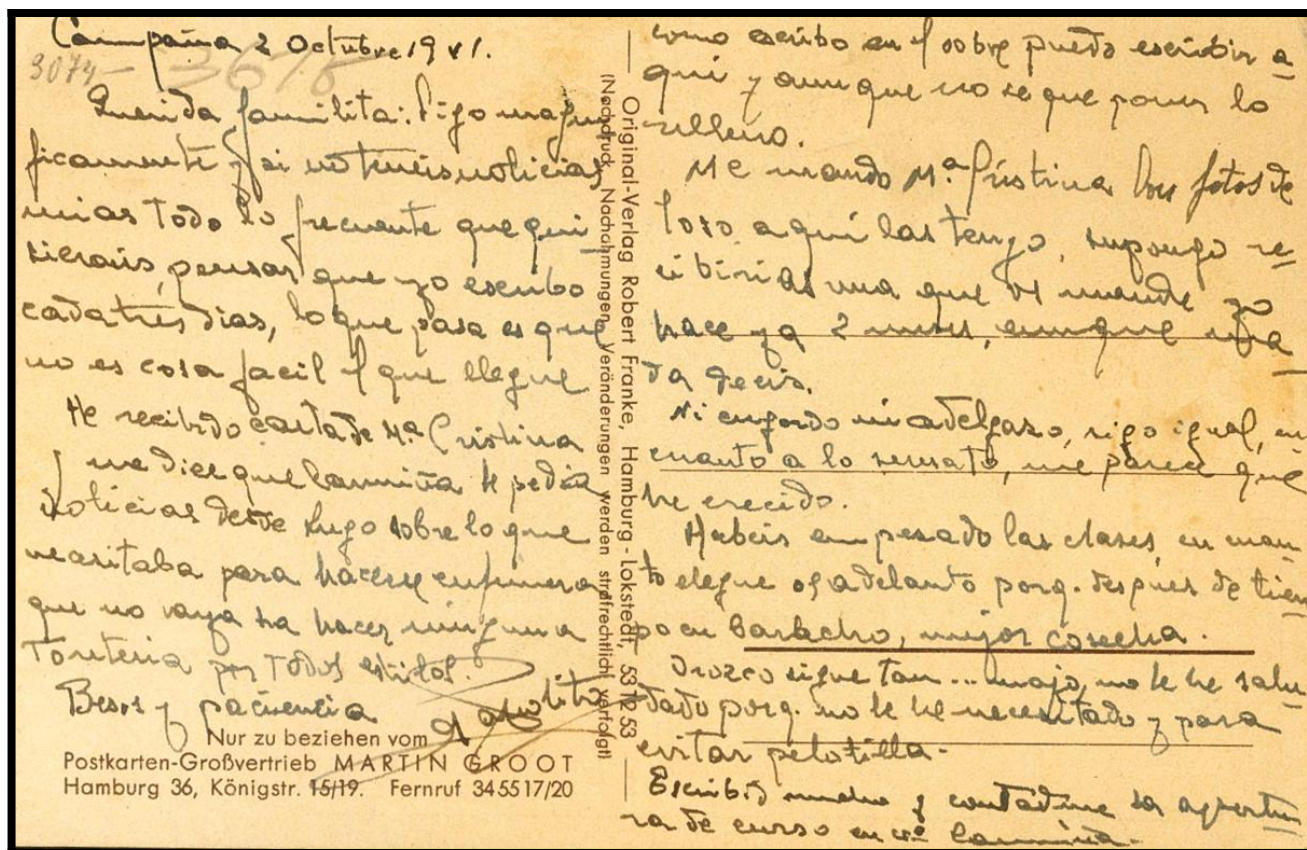 Campaña 2 Octubre 1941.
3074 - 3678
Querida familita: Sigo magni
ficamente y si no teneis noticias
mias todo lo frecuente que qui-
sierais, pensar que yo escribo
cada tres dias, lo que pasa es que
no es cosa facil el que llegue
He recibido carta de Mª Cristina
y me dice que Carmiña le pedia
noticias desde Lugo sobre lo que
necesitaba para hacerse enfermera
que no vaya ha hacer ninguna
Tonteria por Todos estilos.
Besos y paciencia
Nur zu beziehen vom
Postkarten-Großvertrieb MARTIN GROOT
Hamburg 36, Königstr. 15/19. Fernruf 34 55 17/20
Original-Verlag Robert Franke, Hamburg-Lokstedt, 53 12 53
(Nachdruck, Nachahmungen, Veränderungen werden strafrechtlich verfolgt)
como escribo en el sobre puedo escribir a-
qui y aunque no se que poner lo
relleno.
Me mando Mª Cristina las fotos de
aqui las tengo, supongo re-
cibirias una que os mande yo
hace ya 2 meses, aunque na
da decis.
Ni engordo ni adelgazo, sigo igual, en
cuanto a lo sensato, me parece que
he crecido.
Habeis empezado las clases, en cuan-
to llegue os adelanto porq. despues de tiem
po en barbecho, mejor cosecha.
Orozco sigue tan ... majo, no le he salu-
dado porq. no le he necesitado y para
evitar pelotilla.
Escribid mucho y contadme la apertu-
ra de curso en Carmiña.